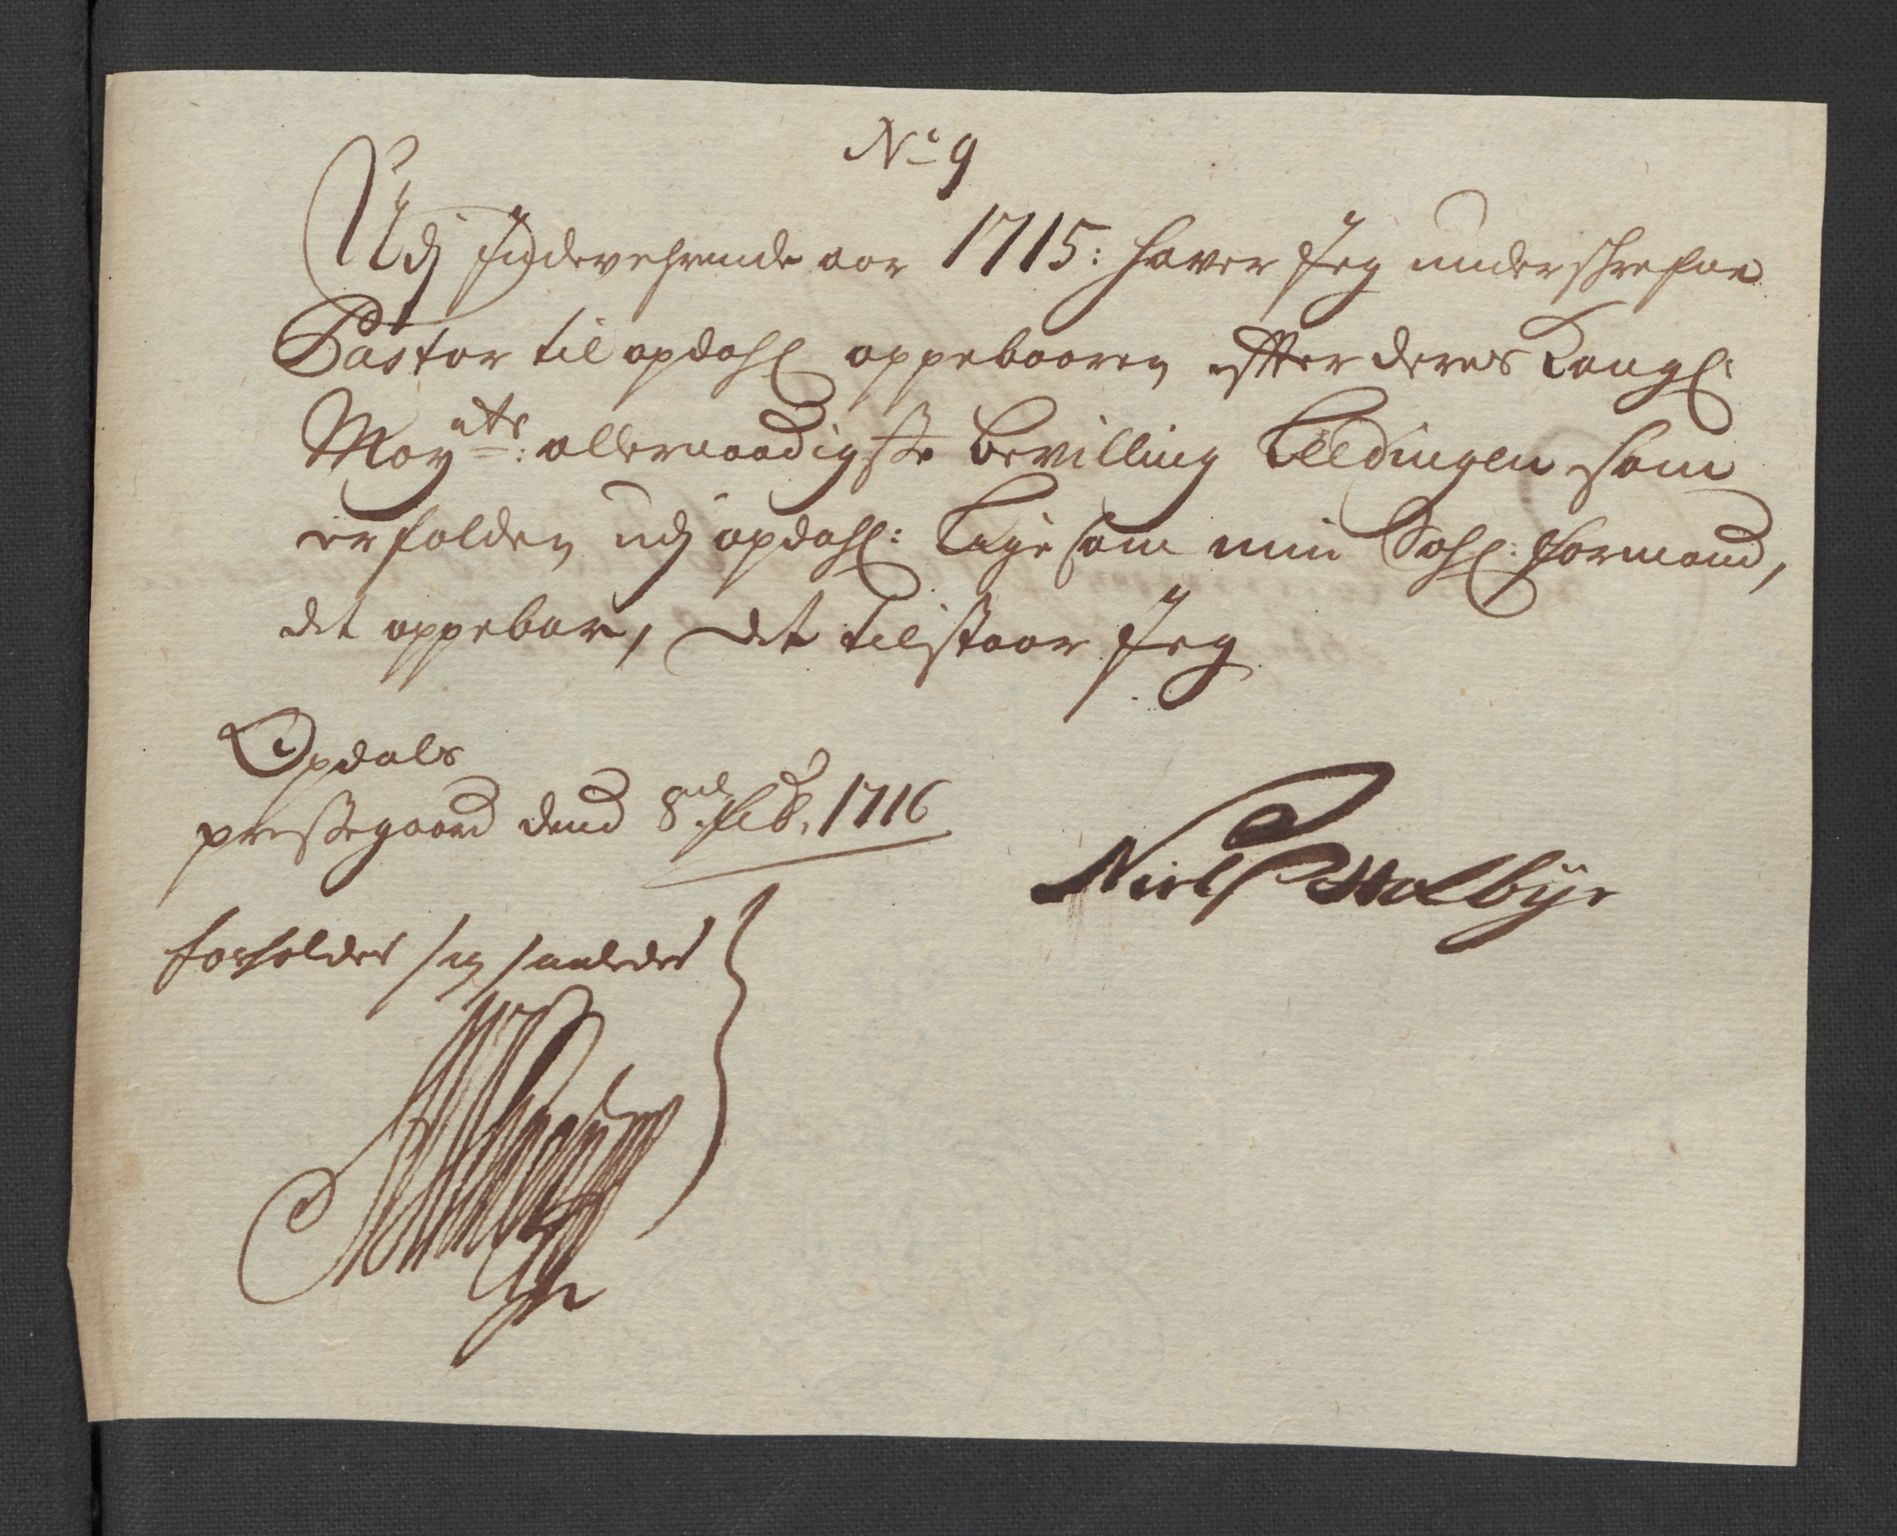 No 9
Udj Indeværende aar 1715: hafver Jeg underschrefne
Pastor til opdahl oppebaaren effter deres Kongl:
May:ts allernaadigste bevilling Leedingen som
er falden udj opdahl: Lige som min Sahl: formand,
det oppebar, det tilstaar Jeg
Opdals
prestegaard dend 8de feb: 1716
Niels
forholder sig saaledes